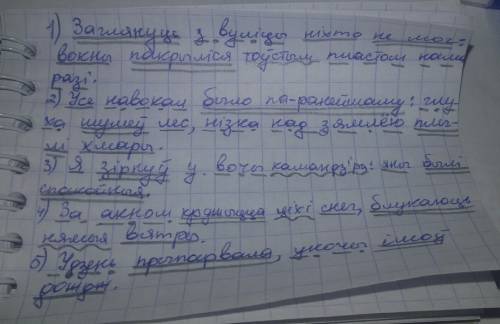 1) Заглянуць з вуліцы ніхто не мог:
вокны пакрыліся тоўстым пластом нама
разі.
2) Усе навокал было па-ранейшаму: глу
ха шумеў лес, нізка над зямлёю плы
лі хмары.
3) Я зірнуў у вочы камандзіра: яны былі
спакойныя.
4) За акном кружыцца ціхі снег, блукаюць
нямыя вятры.
5) Удзень прыпарвала, уночы ішоў
дождж.